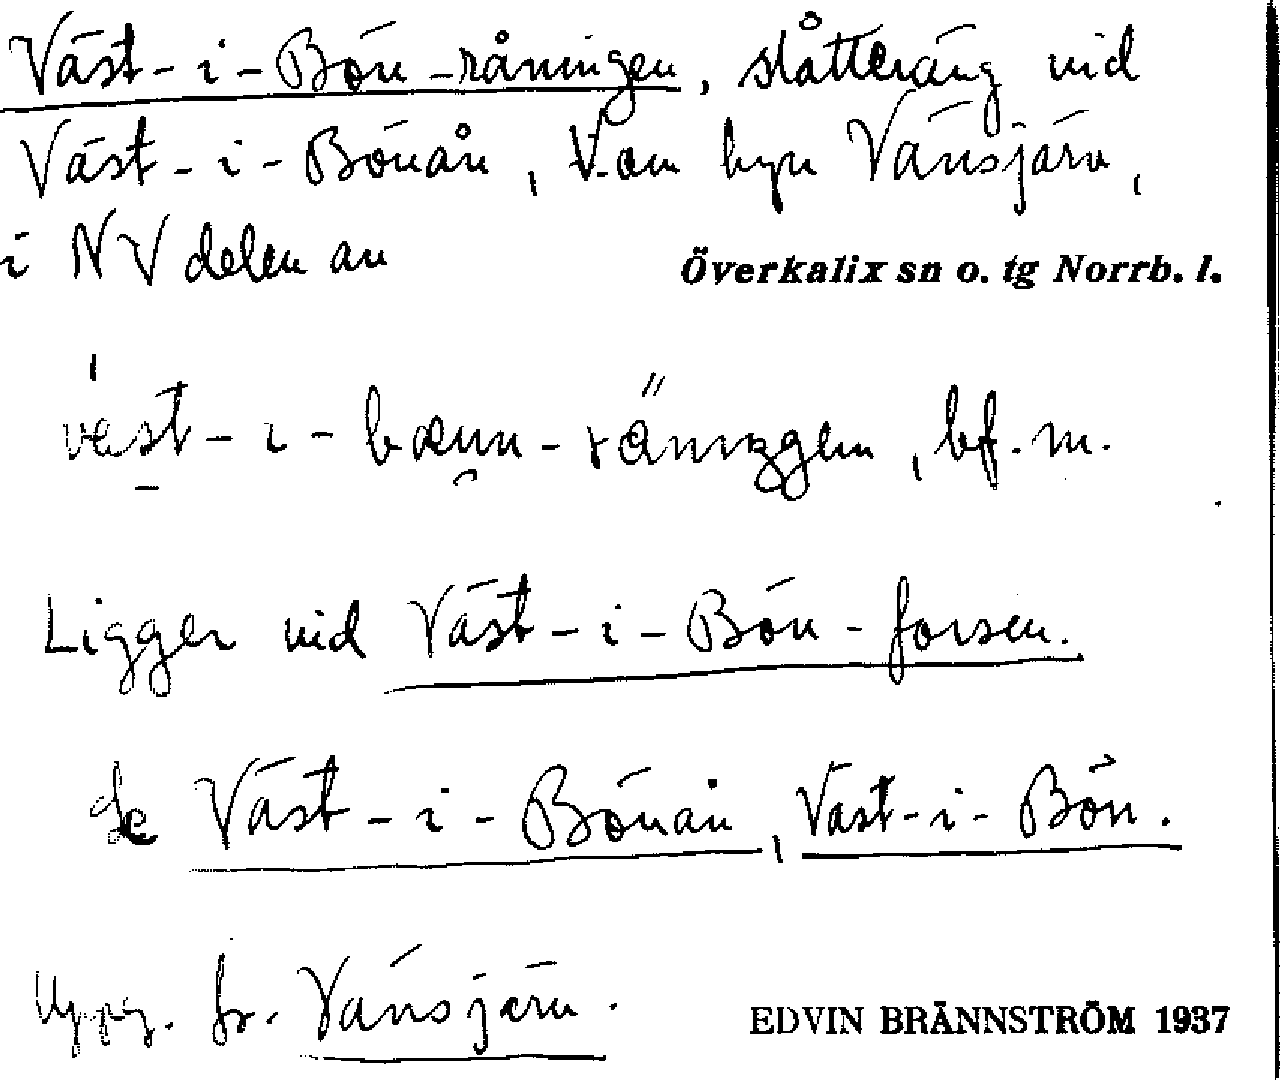 Väst-i-Bön-råningen, slåtteräng vid
Väst-i-Bönån, V. om byn Vänsjärv,
i NV delen av Överkalix sn o. tg Norrb. l.
bf. m.
Ligger vid Väst-i-Bön-forsen.
Se Väst-i-Bönån, Väst-i-Bön.
Uppg. fr. Vänsjärv.
EDVIN BRÄNNSTRÖM 1937